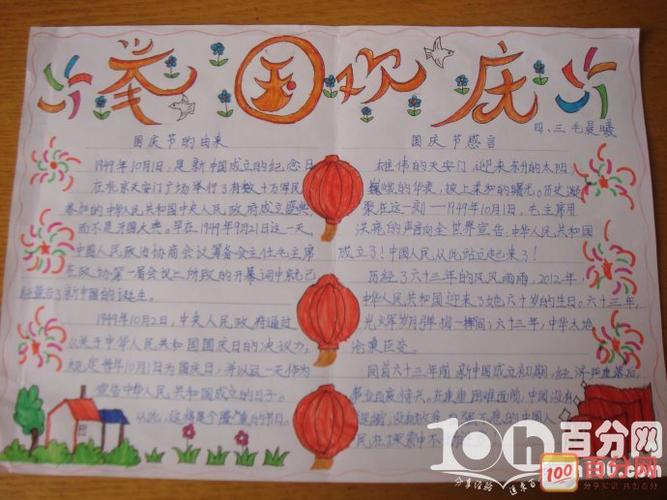 举国欢庆
四、三 毛晨曦
国庆节的由来
1949年10月1日,是新中国成立的纪念日
在北京天安门广场举行了有数十万军民
参加的中华人民共和国中央人民政府成立盛典,
而不是开国大典。早在1949年9月21日这一天,
中国人民政治协商会议筹备会主任毛主席
在政协第一届会议上所致的开幕词中就已
经宣告了新中国的诞生。
1949年10月2日,中央人民政府通过
《关于中华人民共和国国庆日的决议》,
规定每年10月1日为国庆日,并以这一天作为
宣告中华人民共和国成立的日子。
从此,这
的节日。
国庆节感言
雄伟的天安门 迎来东升的太阳
巍峨的华表,披上柔和的曙光。历史凝
聚在这一刻——1949年10月1日,毛主席用
洪亮的声音向全世界宣告:中华人民共和国
成立了!中国人民从此站立起来了!
历经了六十三年的风风雨雨,2012年,
中华人民共和国迎来了她六十岁的生日。六十三年,
光火军岁月弹指一挥间;六十三年,中华大地
沧桑巨变。
回首六十三年前 新中国成立初期,经济
面前,中国没有
中国人
民在探索中不
10h
百分网
分享经验
100
百分网